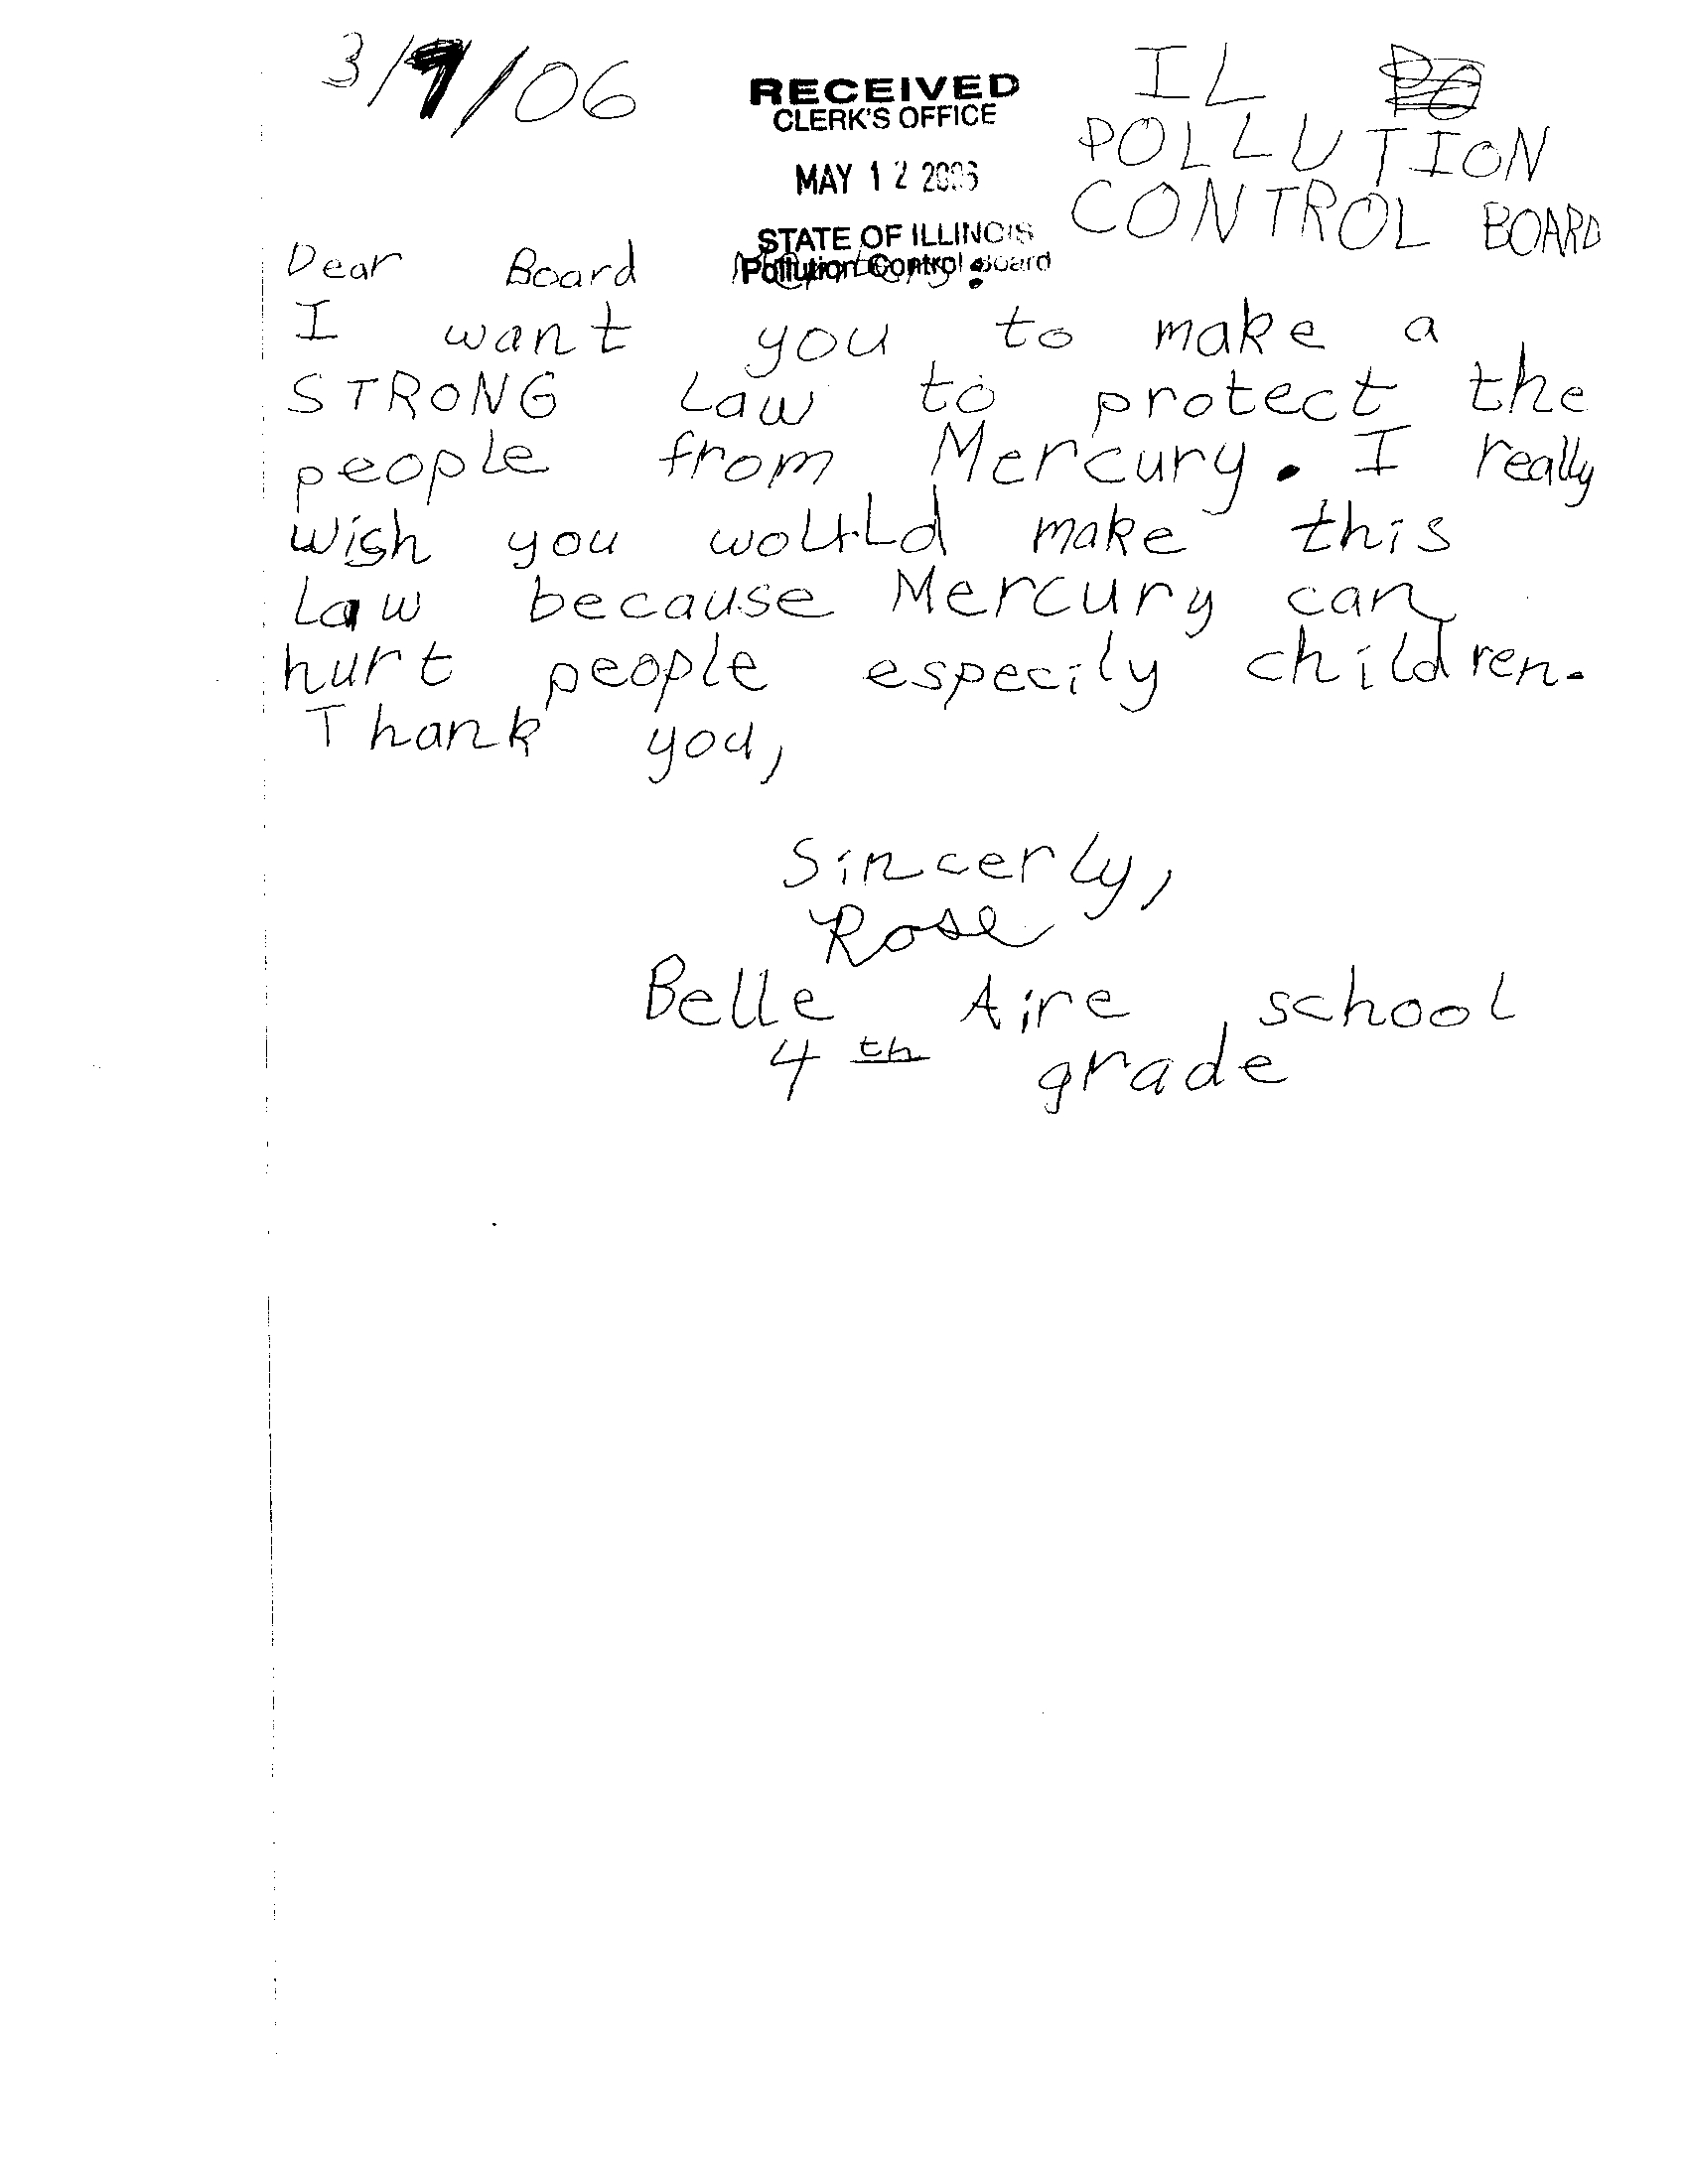 3/9/06
RECEIVED
CLERK'S OFFICE
MAY 12 2006
STATE OF ILLINOIS
Pollution Control Board
IL
POLLUTION
CONTROL BOARD
Dear Board Members:
I want you to make a
STRONG Law to protect the
people from Mercury. I really
wish you would make this
Law because Mercury can
hurt people especily children.
Thank you,
Sincerly,
Rose
Belle Aire school
4th grade